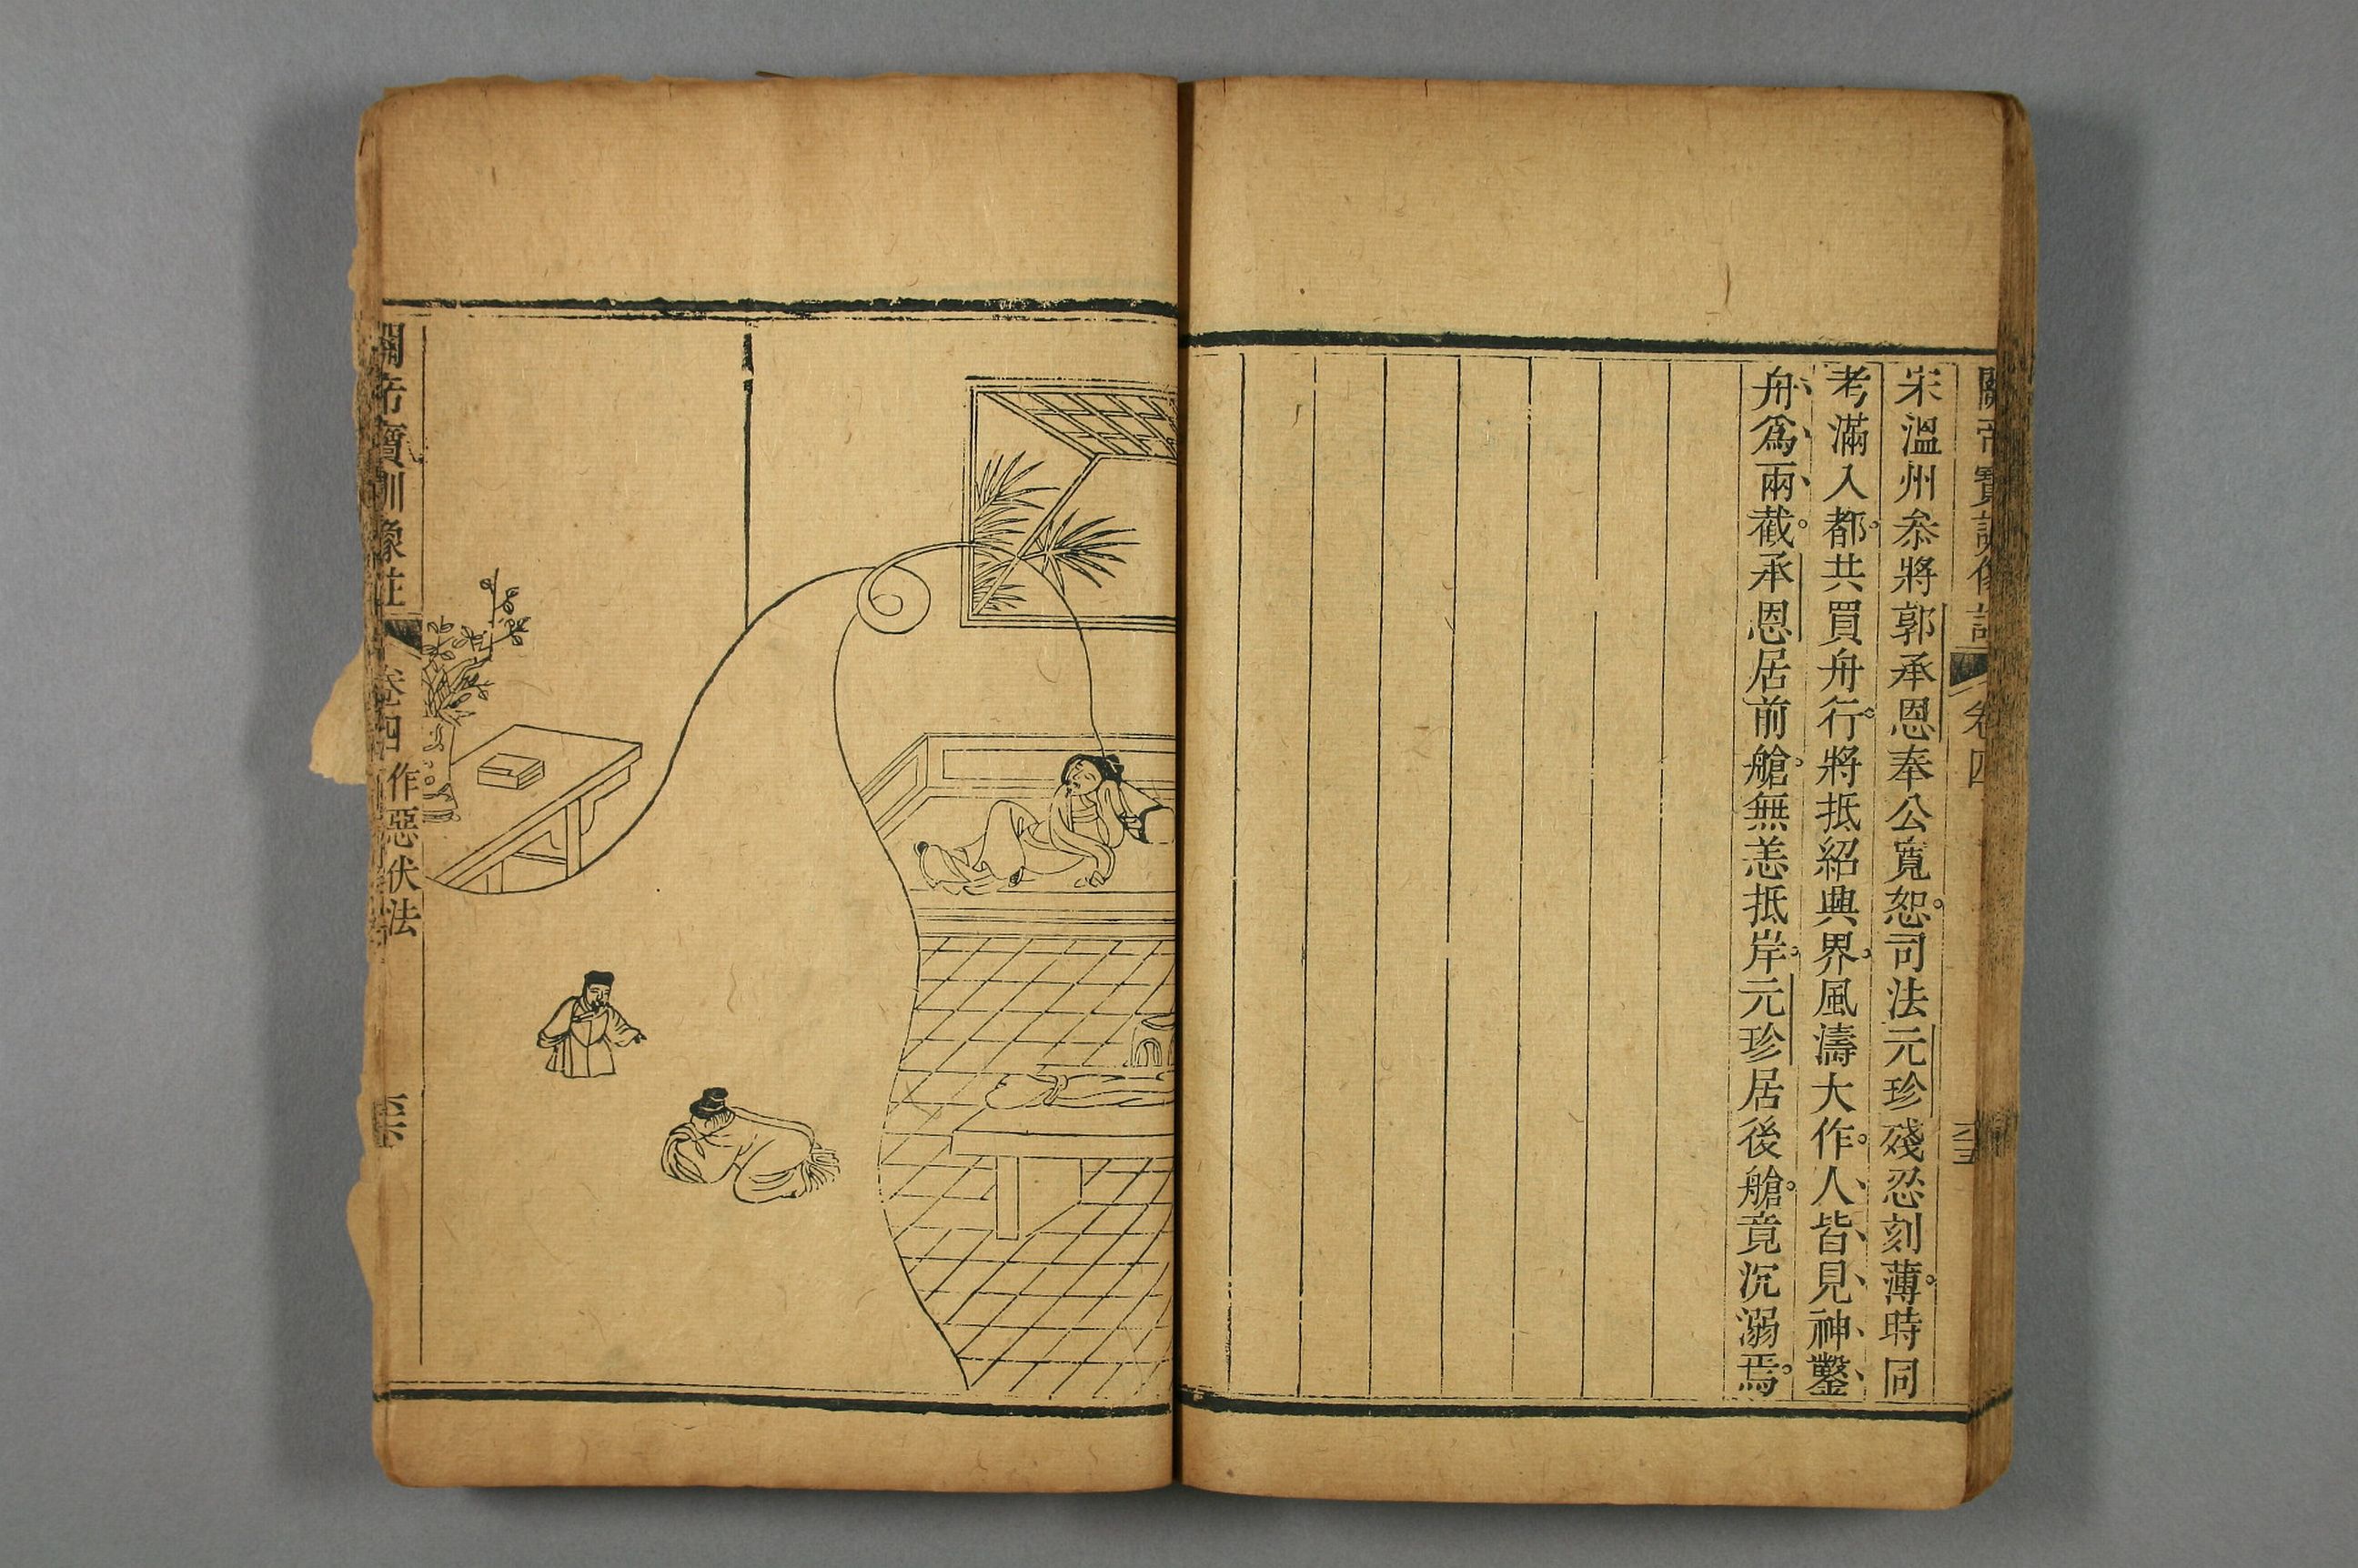 關帝寶訓像註 卷四
宋溫州叅將郭承恩奉公寬恕司法元珍殘忍刻薄時同
考滿入都共買舟行將抵紹興界風濤大作人皆見神鑿
舟爲兩截承恩居前艙無恙抵岸元珍居後艙竟沉溺焉
關帝寶訓像註 卷四 作惡伏法